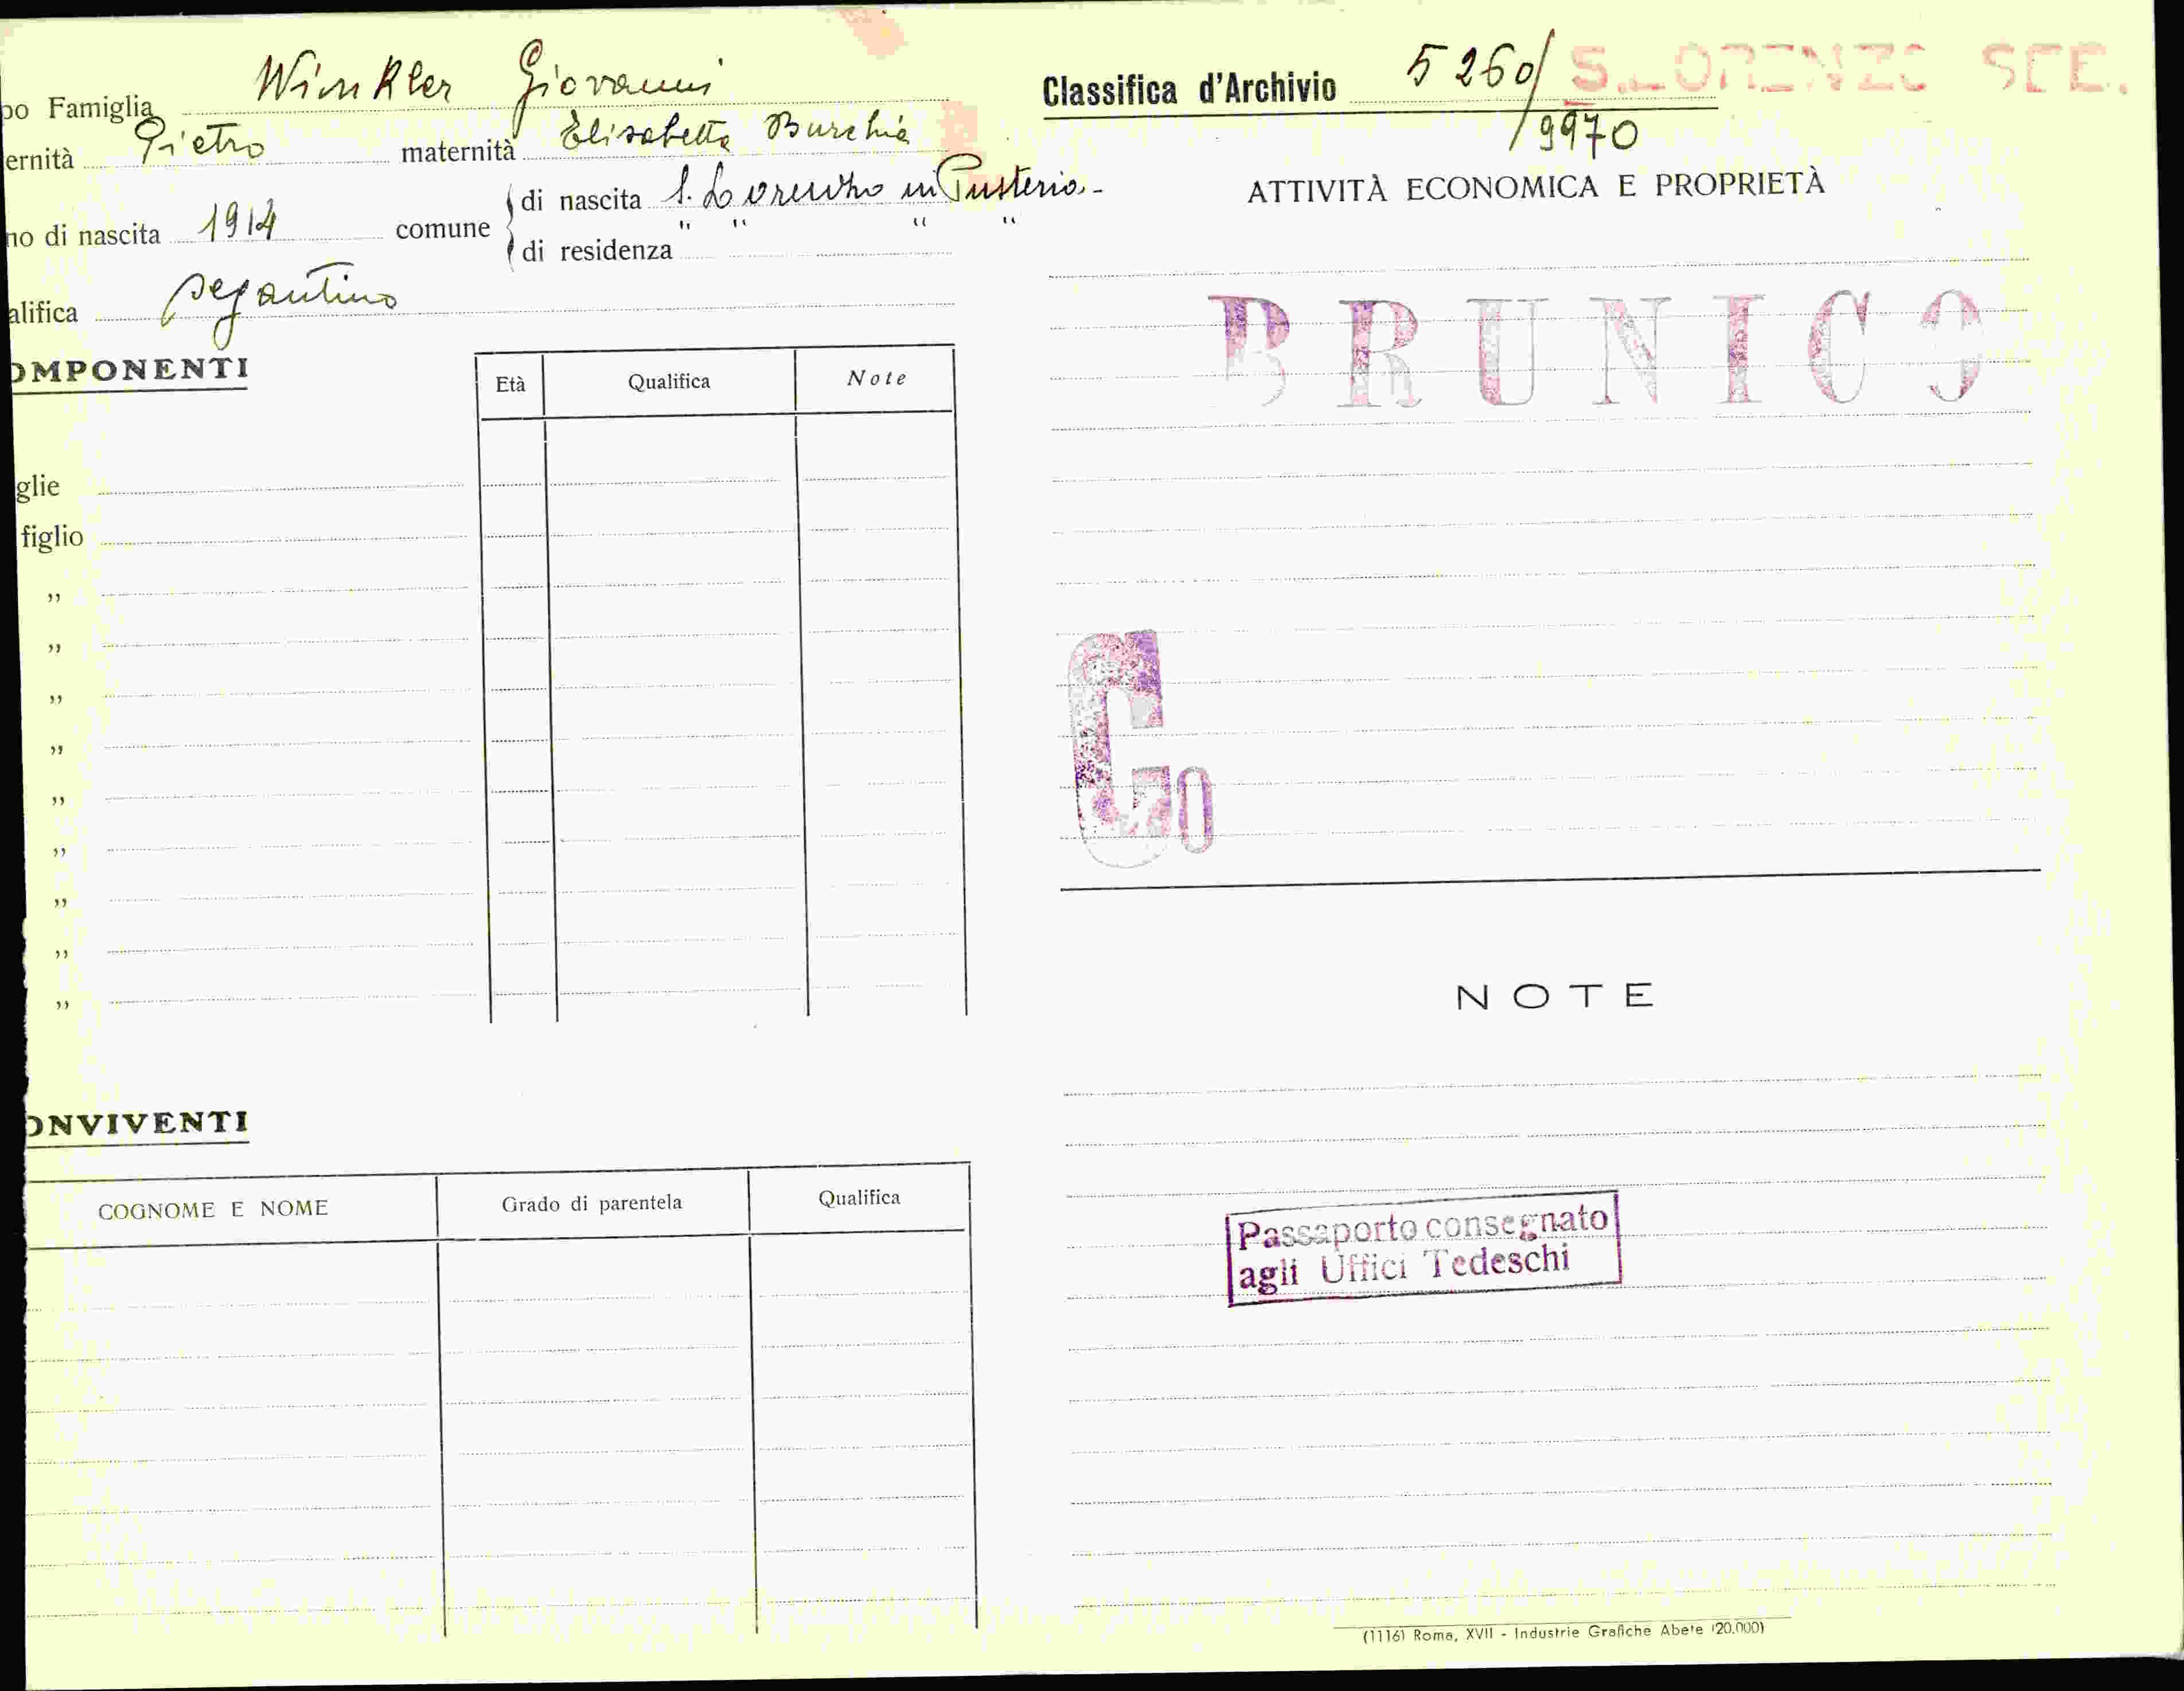 po Famiglia Winkler Giovanni
ernità Pietro maternità Elisabetta Burchia
no di nascita 1914 comune di nascita S. Lorenzo in Pusteria -
di residenza " " " "
alifica segantino
OMPONENTI
Età Qualifica Note
glie
figlio
"
"
"
"
"
"
"
"
"
ONVIVENTI
COGNOME E NOME Grado di parentela Qualifica
Classifica d'Archivio 5260/ S.LORENZO SEE.
/9970
ATTIVITÀ ECONOMICA E PROPRIETÀ
BRUNICO
G0
NOTE
Passaporto consegnato
agli Uffici Tedeschi
(1116) Roma, XVII - Industrie Grafiche Abete (20.000)